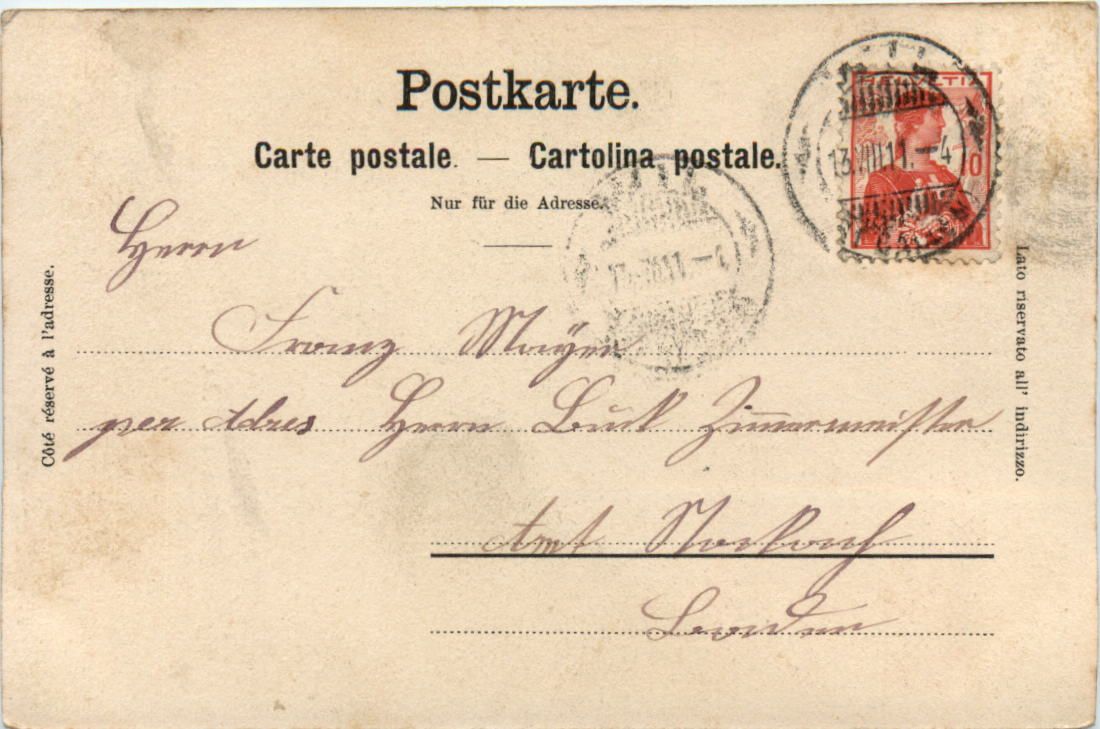 Postkarte.
Carte postale. — Cartolina postale.
Nur für die Adresse.
HELVETIA
10
13.VIII.11.—4
13.VIII.11.—4
Côté réservé à l'adresse.
Lato riservato all' indirizzo.
Herrn
Franz Mayer
per Adres Herrn Buck Zimmermeister
Amt Stockach